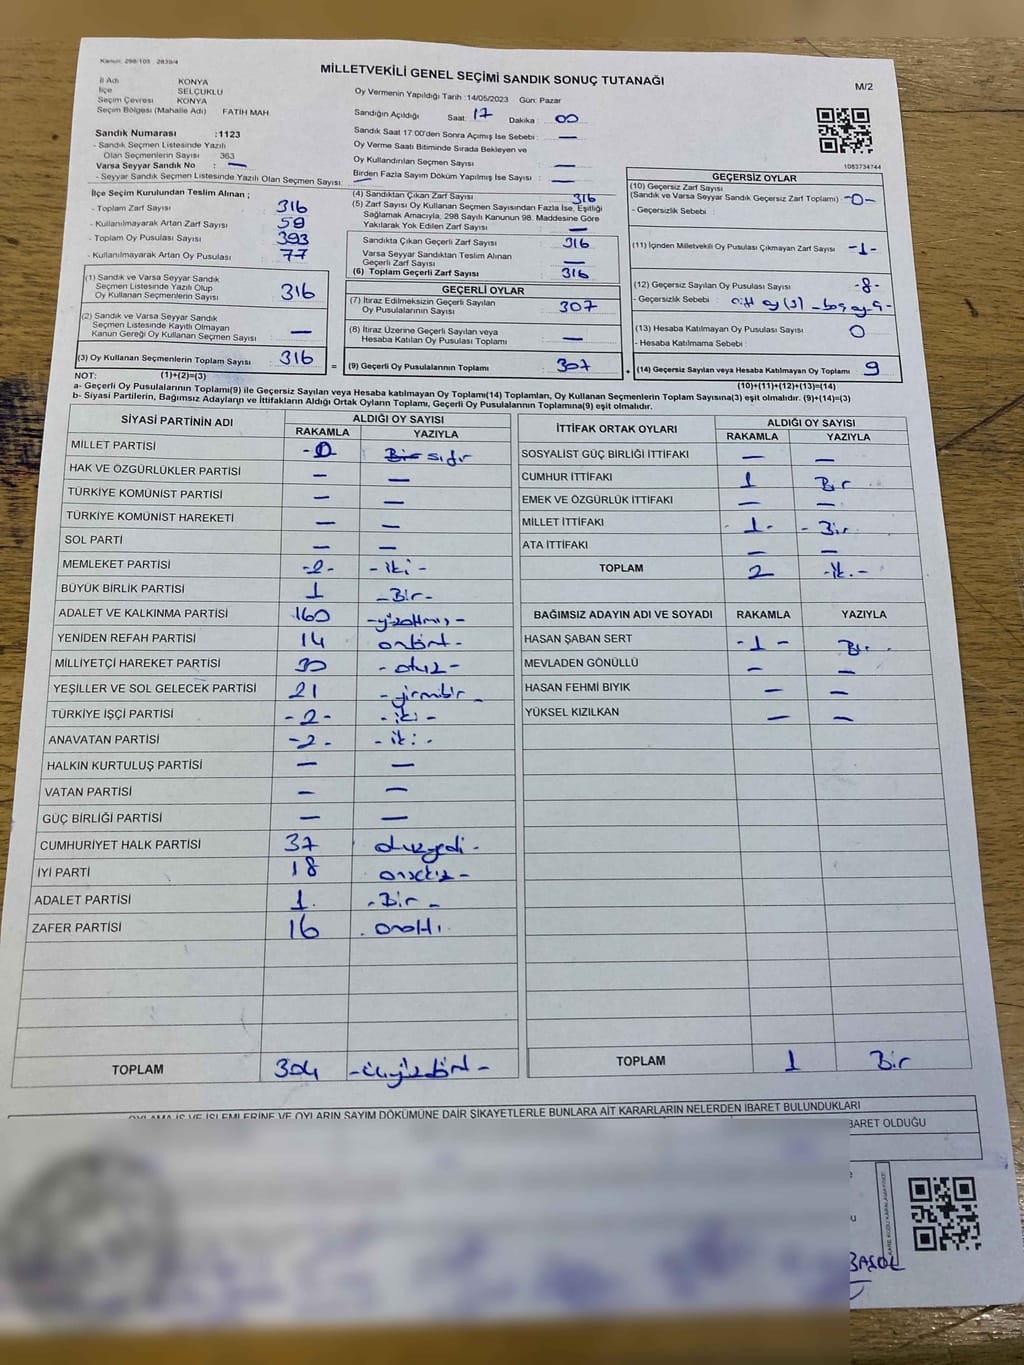 Kanun: 298/105 , 2839/4
MİLLETVEKİLİ GENEL SEÇİMİ SANDIK SONUÇ TUTANAĞI
M/2
İl Adı KONYA
İlçe SELÇUKLU
Seçim Çevresi KONYA
Seçim Bölgesi (Mahalle Adı) FATİH MAH
Sandık Numarası :1123
- Sandık Seçmen Listesinde Yazılı
Olan Seçmenlerin Sayısı 363
Varsa Seyyar Sandık No : —
- Seyyar Sandık Seçmen Listesinde Yazılı Olan Seçmen Sayısı: —
Oy Vermenin Yapıldığı Tarih :14/05/2023 Gün: Pazar
Sandığın Açıldığı Saat: 17 Dakika : 00
Sandık Saat 17:00'den Sonra Açımış İse Sebebi : —
Oy Verme Saati Bitiminde Sırada Bekleyen ve
Oy Kullandırılan Seçmen Sayısı : —
Birden Fazla Sayım Döküm Yapılmış İse Sayısı : —
1083734744
İlçe Seçim Kurulundan Teslim Alınan ;
- Toplam Zarf Sayısı : 316
- Kullanılmayarak Artan Zarf Sayısı : 59
- Toplam Oy Pusulası Sayısı : 393
- Kullanılmayarak Artan Oy Pusulası : 77
(1) Sandık ve Varsa Seyyar Sandık
Seçmen Listesinde Yazılı Olup
Oy Kullanan Seçmenlerin Sayısı : 316
(2) Sandık ve Varsa Seyyar Sandık
Seçmen Listesinde Kayıtlı Olmayan
Kanun Gereği Oy Kullanan Seçmen Sayısı : —
(3) Oy Kullanan Seçmenlerin Toplam Sayısı : 316
(1)+(2)=(3)
(4) Sandıktan Çıkan Zarf Sayısı : 316
(5) Zarf Sayısı Oy Kullanan Seçmen Sayısından Fazla İse, Eşitliği
Sağlamak Amacıyla, 298 Sayılı Kanunun 98. Maddesine Göre
Yakılarak Yok Edilen Zarf Sayısı : —
Sandıkta Çıkan Geçerli Zarf Sayısı : 316
Varsa Seyyar Sandıktan Teslim Alınan
Geçerli Zarf Sayısı : —
(6) Toplam Geçerli Zarf Sayısı : 316
GEÇERLİ OYLAR
(7) İtiraz Edilmeksizin Geçerli Sayılan
Oy Pusulalarının Sayısı : 307
(8) İtiraz Üzerine Geçerli Sayılan veya
Hesaba Katılan Oy Pusulası Toplamı : —
= (9) Geçerli Oy Pusulalarının Toplamı : 307
GEÇERSİZ OYLAR
(10) Geçersiz Zarf Sayısı
(Sandık ve Varsa Seyyar Sandık Geçersiz Zarf Toplamı) -0-
- Geçersizlik Sebebi :
(11) İçinden Milletvekili Oy Pusulası Çıkmayan Zarf Sayısı -1-
(12) Geçersiz Sayılan Oy Pusulası Sayısı : -8-
- Geçersizlik Sebebi :
(13) Hesaba Katılmayan Oy Pusulası Sayısı : 0
- Hesaba Katılmama Sebebi :
+ (14) Geçersiz Sayılan veya Hesaba Katılmayan Oy Toplamı : 9
(10)+(11)+(12)+(13)=(14)
NOT:
a- Geçerli Oy Pusulalarının Toplamı(9) ile Geçersiz Sayılan veya Hesaba katılmayan Oy Toplamı(14) Toplamları, Oy Kullanan Seçmenlerin Toplam Sayısına(3) eşit olmalıdır. (9)+(14)=(3)
b- Siyasi Partilerin, Bağımsız Adayların ve İttifakların Aldığı Ortak Oyların Toplamı, Geçerli Oy Pusulalarının Toplamına(9) eşit olmalıdır.
SİYASİ PARTİNİN ADI ALDIĞI OY SAYISI
RAKAMLA YAZIYLA
MİLLET PARTİSİ -0 Bir sıfır
HAK VE ÖZGÜRLÜKLER PARTİSİ — —
TÜRKİYE KOMÜNİST PARTİSİ — —
TÜRKİYE KOMÜNİST HAREKETİ — —
SOL PARTİ — —
MEMLEKET PARTİSİ -2- -iki-
BÜYÜK BİRLİK PARTİSİ 1 -Bir-
ADALET VE KALKINMA PARTİSİ 160 -yüzatmış-
YENİDEN REFAH PARTİSİ 14 ondört-
MİLLİYETÇİ HAREKET PARTİSİ 30 -otuz-
YEŞİLLER VE SOL GELECEK PARTİSİ 21 -yirmibir-
TÜRKİYE İŞÇİ PARTİSİ -2- -iki-
ANAVATAN PARTİSİ -2- -iki-
HALKIN KURTULUŞ PARTİSİ — —
VATAN PARTİSİ — —
GÜÇ BİRLİĞİ PARTİSİ — —
CUMHURİYET HALK PARTİSİ 37 otuzyedi-
İYİ PARTİ 18 onsekiz-
ADALET PARTİSİ 1. -Bir-
ZAFER PARTİSİ 16 onaltı.
TOPLAM 304 -üçyüzdört-
İTTİFAK ORTAK OYLARI ALDIĞI OY SAYISI
RAKAMLA YAZIYLA
SOSYALİST GÜÇ BİRLİĞİ İTTİFAKI — —
CUMHUR İTTİFAKI 1 Bir
EMEK VE ÖZGÜRLÜK İTTİFAKI — —
MİLLET İTTİFAKI -1- -Bir
ATA İTTİFAKI — —
TOPLAM 2 -iki-
BAĞIMSIZ ADAYIN ADI VE SOYADI RAKAMLA YAZIYLA
HASAN ŞABAN SERT -1- Bir.
MEVLADEN GÖNÜLLÜ — —
HASAN FEHMİ BIYIK — —
YÜKSEL KIZILKAN — —
TOPLAM 1 Bir
OYLAMA İŞ VE İŞLEMLERİNE VE OYLARIN SAYIM DÖKÜMÜNE DAİR ŞİKAYETLERLE BUNLARA AİT KARARLARIN NELERDEN İBARET BULUNDUKLARI
BARET OLDUĞU
BAŞOL